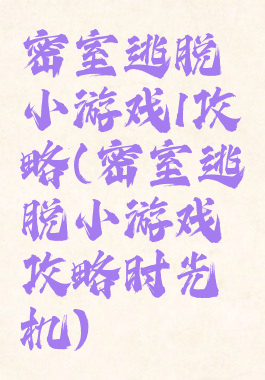 密室逃脱
小游戏1攻
略(密室逃
脱小游戏
攻略时光
机)